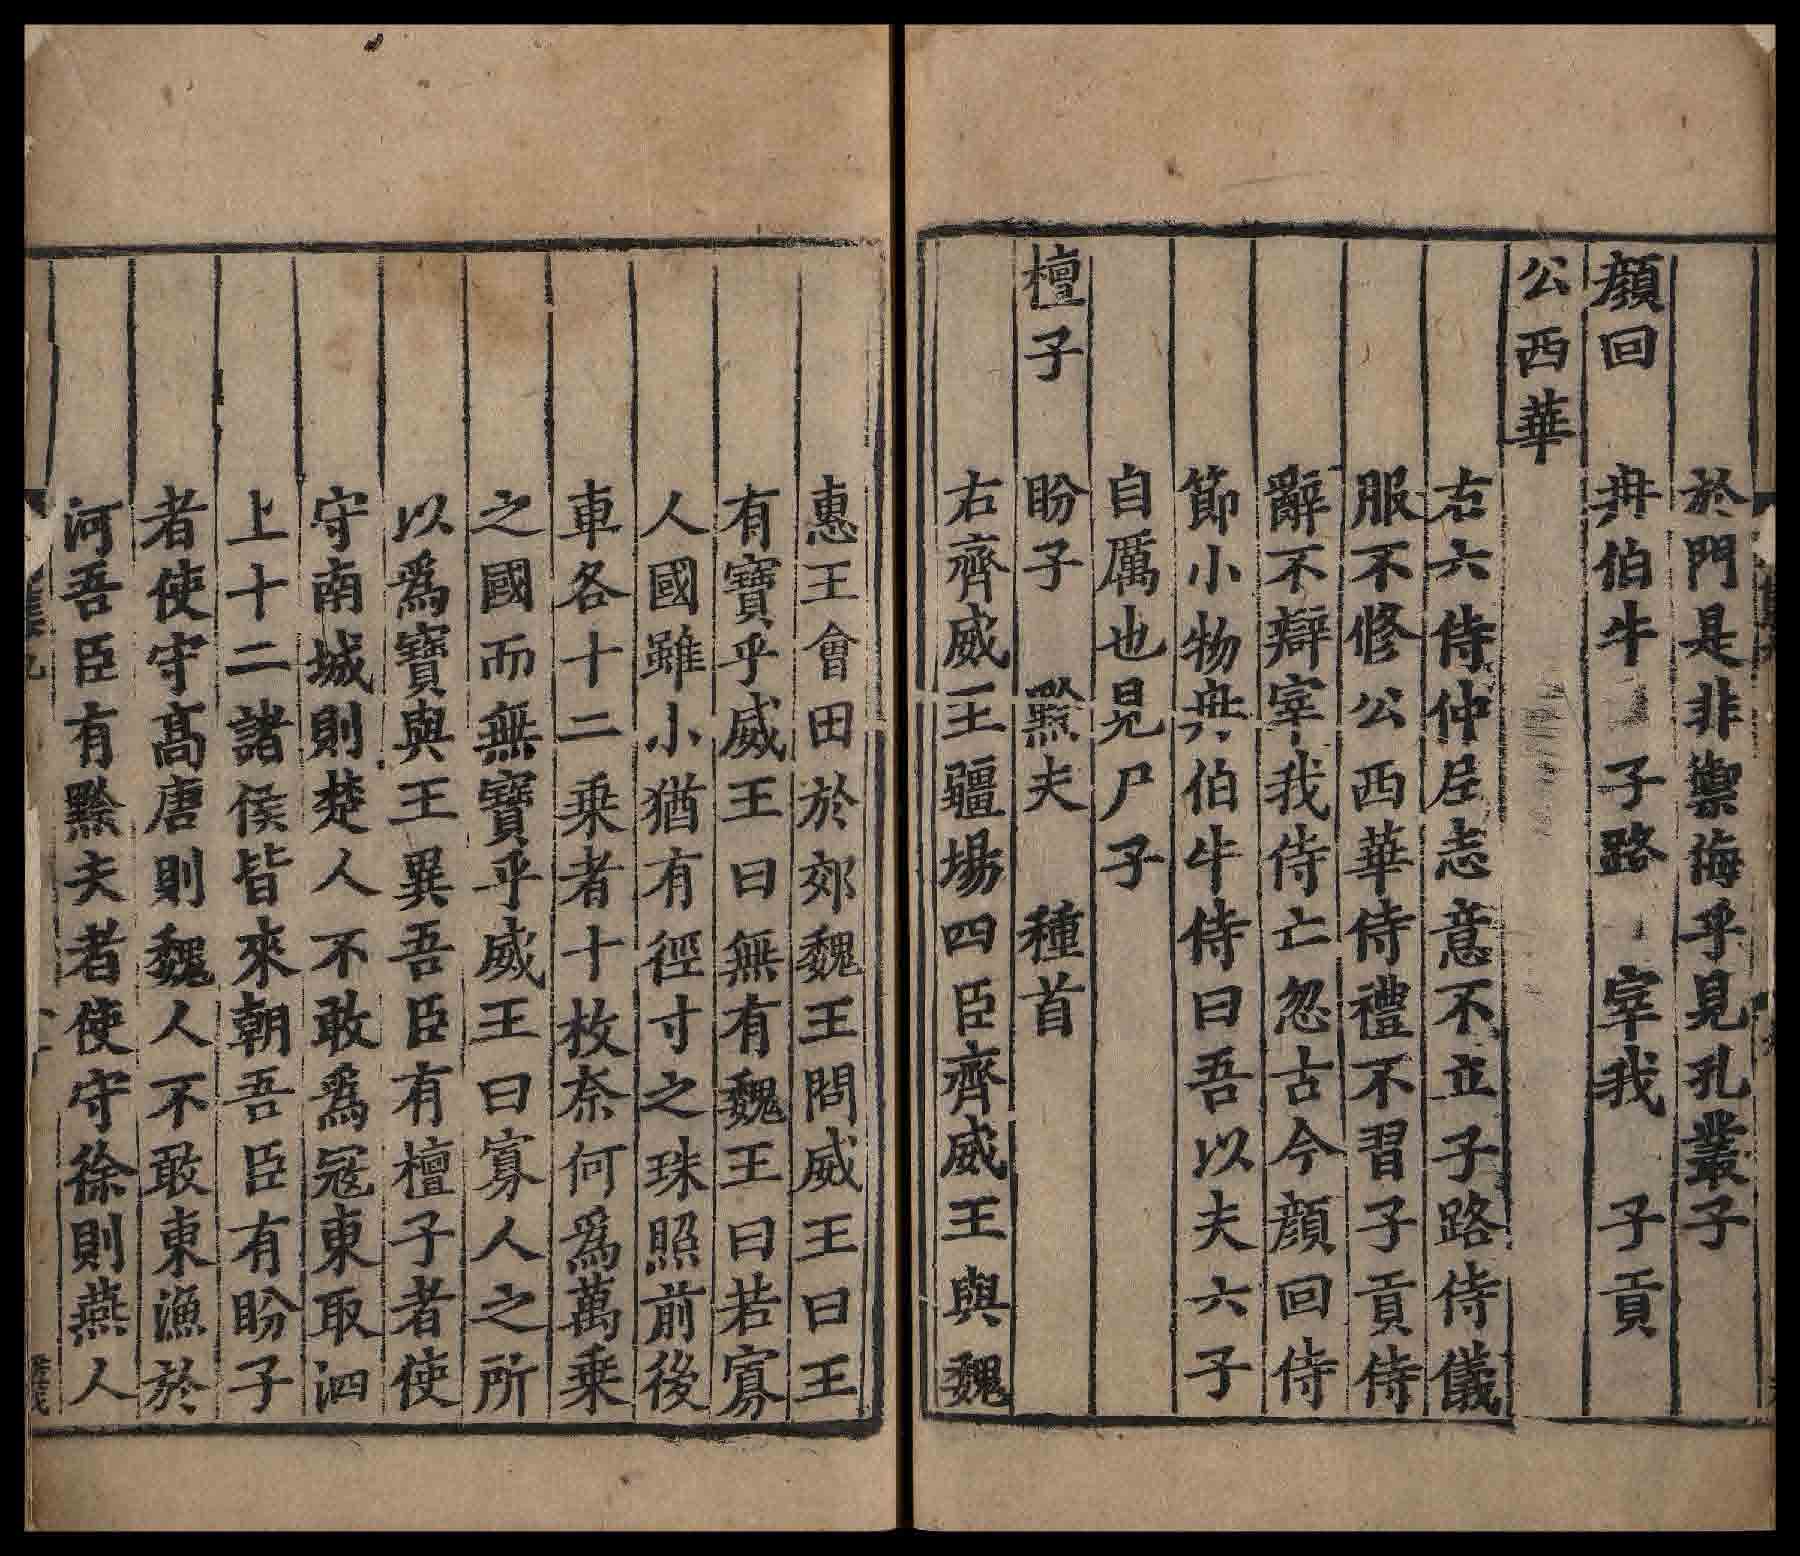 於門是非禦侮乎見孔叢子
顔回　冉伯牛　子路　宰我　子貢
公西華
右六侍仲尼志意不立子路侍儀
服不修公西華侍禮不習子貢侍
辭不辯宰我侍亡忽古今顔回侍
節小物冉伯牛侍曰吾以夫六子
自厲也見尸子
檀子　盼子　黔夫　種首
右齊威王疆場四臣齊威王與魏
惠王會田於郊魏王問威王曰王
有寶乎威王曰無有魏王曰若寡
人國雖小猶有徑寸之珠照前後
車各十二乗者十枚柰何爲萬乗
之國而無寶乎威王曰寡人之所
以爲寶與王異吾臣有檀子者使
守南城則楚人不敢爲冦東取泗
上十二諸侯皆來朝吾臣有盼子
者使守髙唐則魏人不敢東漁於
河吾臣有黔夫者使守徐則燕人